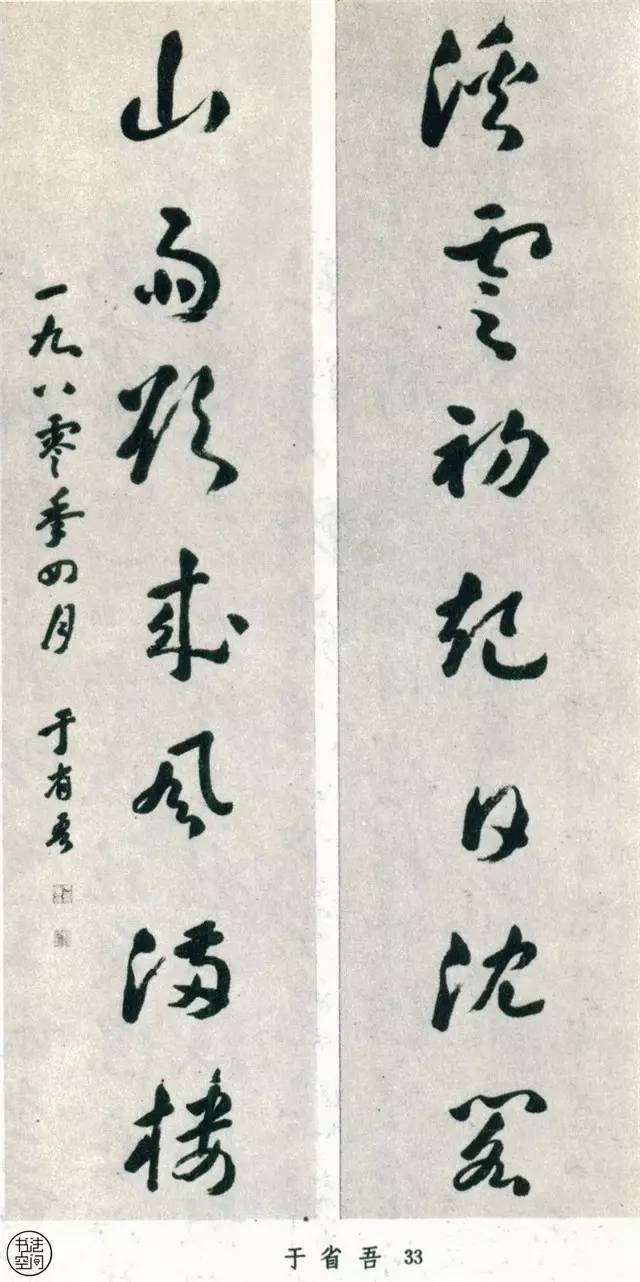 溪雲初起日沈閣
山雨欲來風滿樓
一九八零季四月 于省吾
于省吾 33
书法
空间